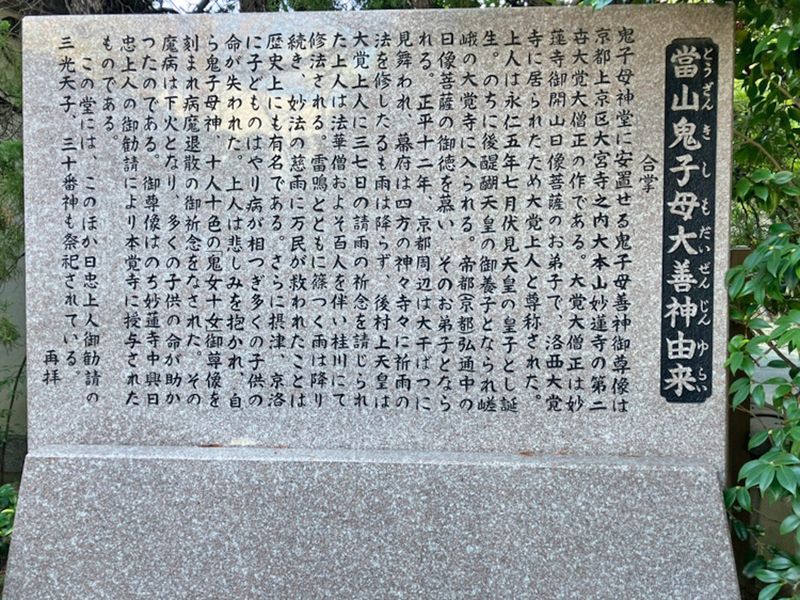 當山鬼子母大善神由来
とうざんきしもだいぜんじんゆらい
合掌
鬼子母神堂に安置せる鬼子母善神御尊像は
京都上京区大宮寺之内大本山妙蓮寺の第二
大覚大僧正の作である。大覚大僧正は妙
蓮寺御開山日像菩薩のお弟子で、洛西大覚
寺に居られたため大覚上人と尊称された。
上人は永仁五年七月伏見天皇の皇子とし誕
生。のちに後醍醐天皇の御養子となられ嵯
峨の大覚寺に入られる。帝都(京都)弘通中の
日像菩薩の御徳を慕い、そのお弟子となら
れる。正平十二年、京都周辺は大干ばつに
見舞われ、幕府は四方の神々寺々に祈雨の
法を修したるも雨は降らず、後村上天皇は
大覚上人に三七日の請雨の祈念を請じられ
た上人は法華僧およそ百人を伴い桂川にて
修法される。雷鳴とともに篠つく雨は降り
続き、妙法の慈雨に万民が救われたことは
歴史上にも有名である。さらに摂津、京洛
に子どものはやり病が相つぎ多くの子供の
命が失われた。上人は悲しみを抱かれ、自
ら鬼子母神、十人十色の鬼女(十女)御尊像を
刻まれ病魔退散の御祈念をなされた。その
魔病は下火となり、多くの子供の命が助か
ったのである。御尊像はのち妙蓮寺中興日
忠上人の御勧請により本覚寺に授与された
ものである
この堂には、このほか日忠上人御勧請の
三光天子、三十番神も祭祀されている。
再拝